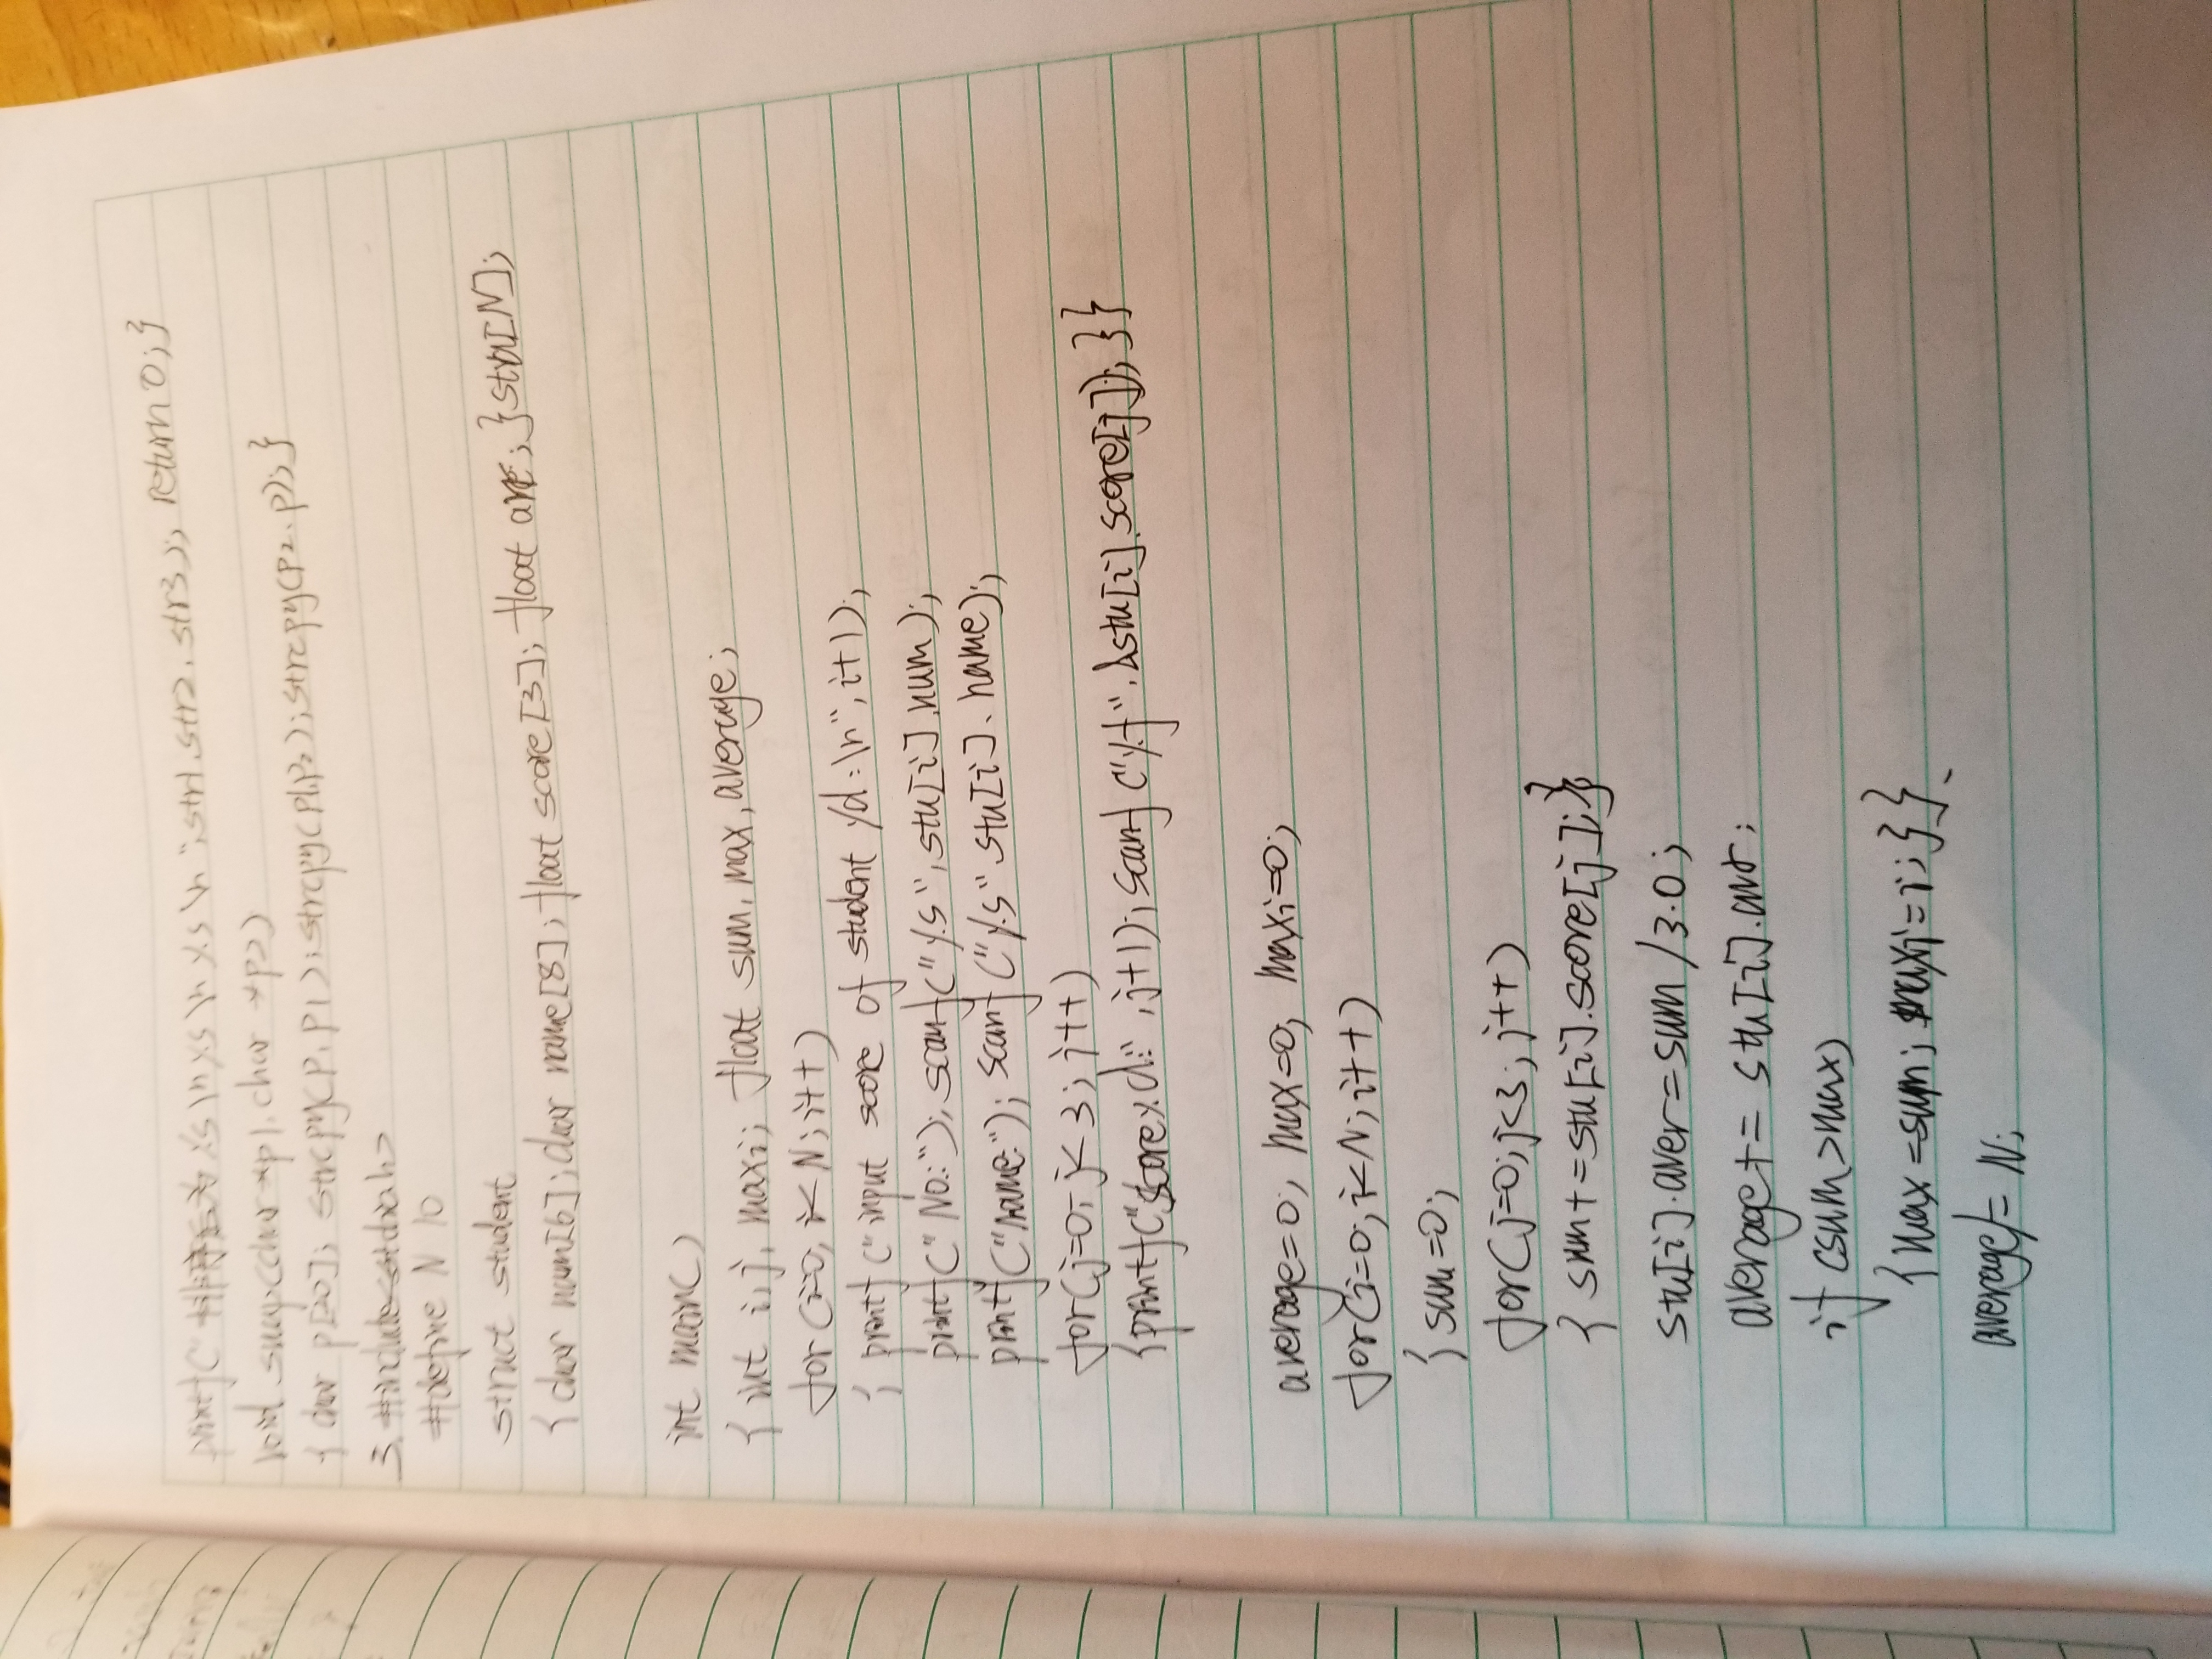 printf("排序后为%s\n%s\n%s\n",str1,str2,str3); return 0;}
void swap(char *p1,char *p2)
{ char p[20]; strcpy(p,p1);strcpy(p1,p2);strcpy(p2,p);}
3. #include<stdio.h>
#define N 10
struct student
{ char num[6];char name[8];float score[3];float aver;}stu[N];
int main()
{ int i,j,maxi; float sum,max,average;
for(i=0;i<N;i++)
{ printf("input score of student %d:\n",i+1);
printf("NO.:");scanf("%s",stu[i].num);
printf("name:");scanf("%s" stu[i].name);
for(j=0;j<3;j++)
{printf("score%d:",j+1);scanf("%f",&stu[i].score[j]);}}
average=0; max=0; maxi=0;
for(i=0;i<N;i++)
{ sum=0;
for(j=0;j<3;j++)
{ sum+=stu[i].score[j];}
stu[i].aver=sum/3.0;
average+= stu[i].aver;
if(sum>max)
{max=sum; maxi=i;}}
average/= N;